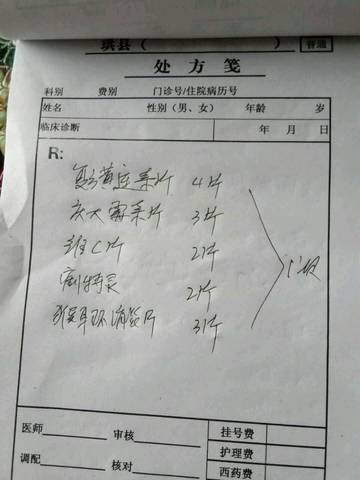 珙县（ ） 普通
处方笺
科别 费别 门诊号/住院病历号
姓名 性别（男、女） 年龄 岁
临床诊断 年 月 日
R:
复方黄连素片 4片
庆大霉素片 3片
维C片 2片
痢特灵 2片
3片
医师 审核 挂号费
护理费
调配 核对 西药费